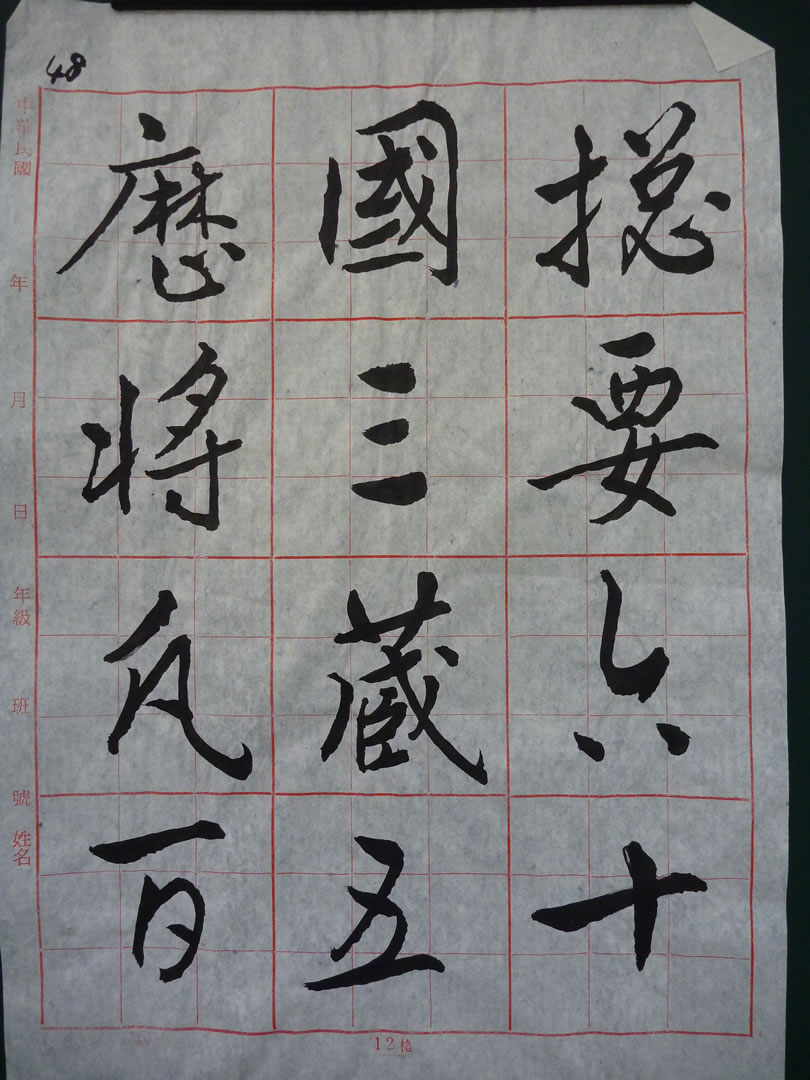 48
歷國揔
將三要
凡藏六
百五十
中華民國 年 月 日 年級 班 號 姓名
12格